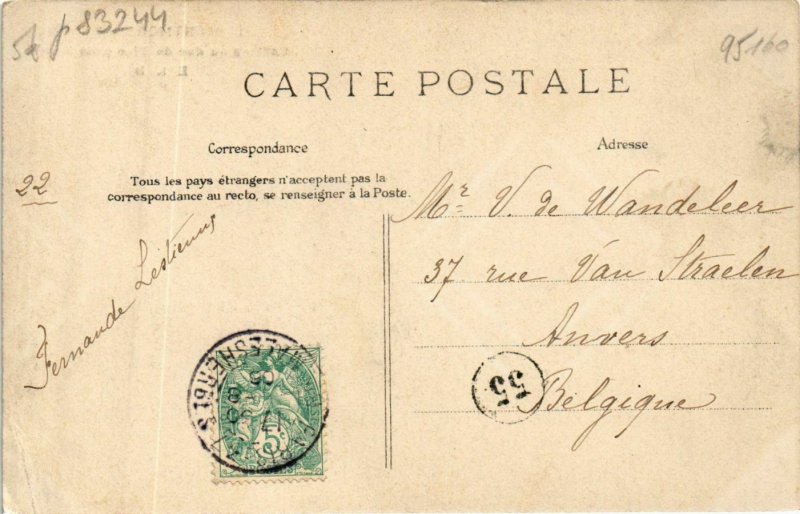 p83244
95160
CARTE POSTALE
Correspondance
Adresse
Tous les pays étrangers n'acceptent pas la
correspondance au recto, se renseigner à la Poste.
22
Mr V. de Wandeleer
37 rue Van Straelen
Anvers
Belgique
Fernande Lestienne
55
PARIS
MALESHERBES
17
5c